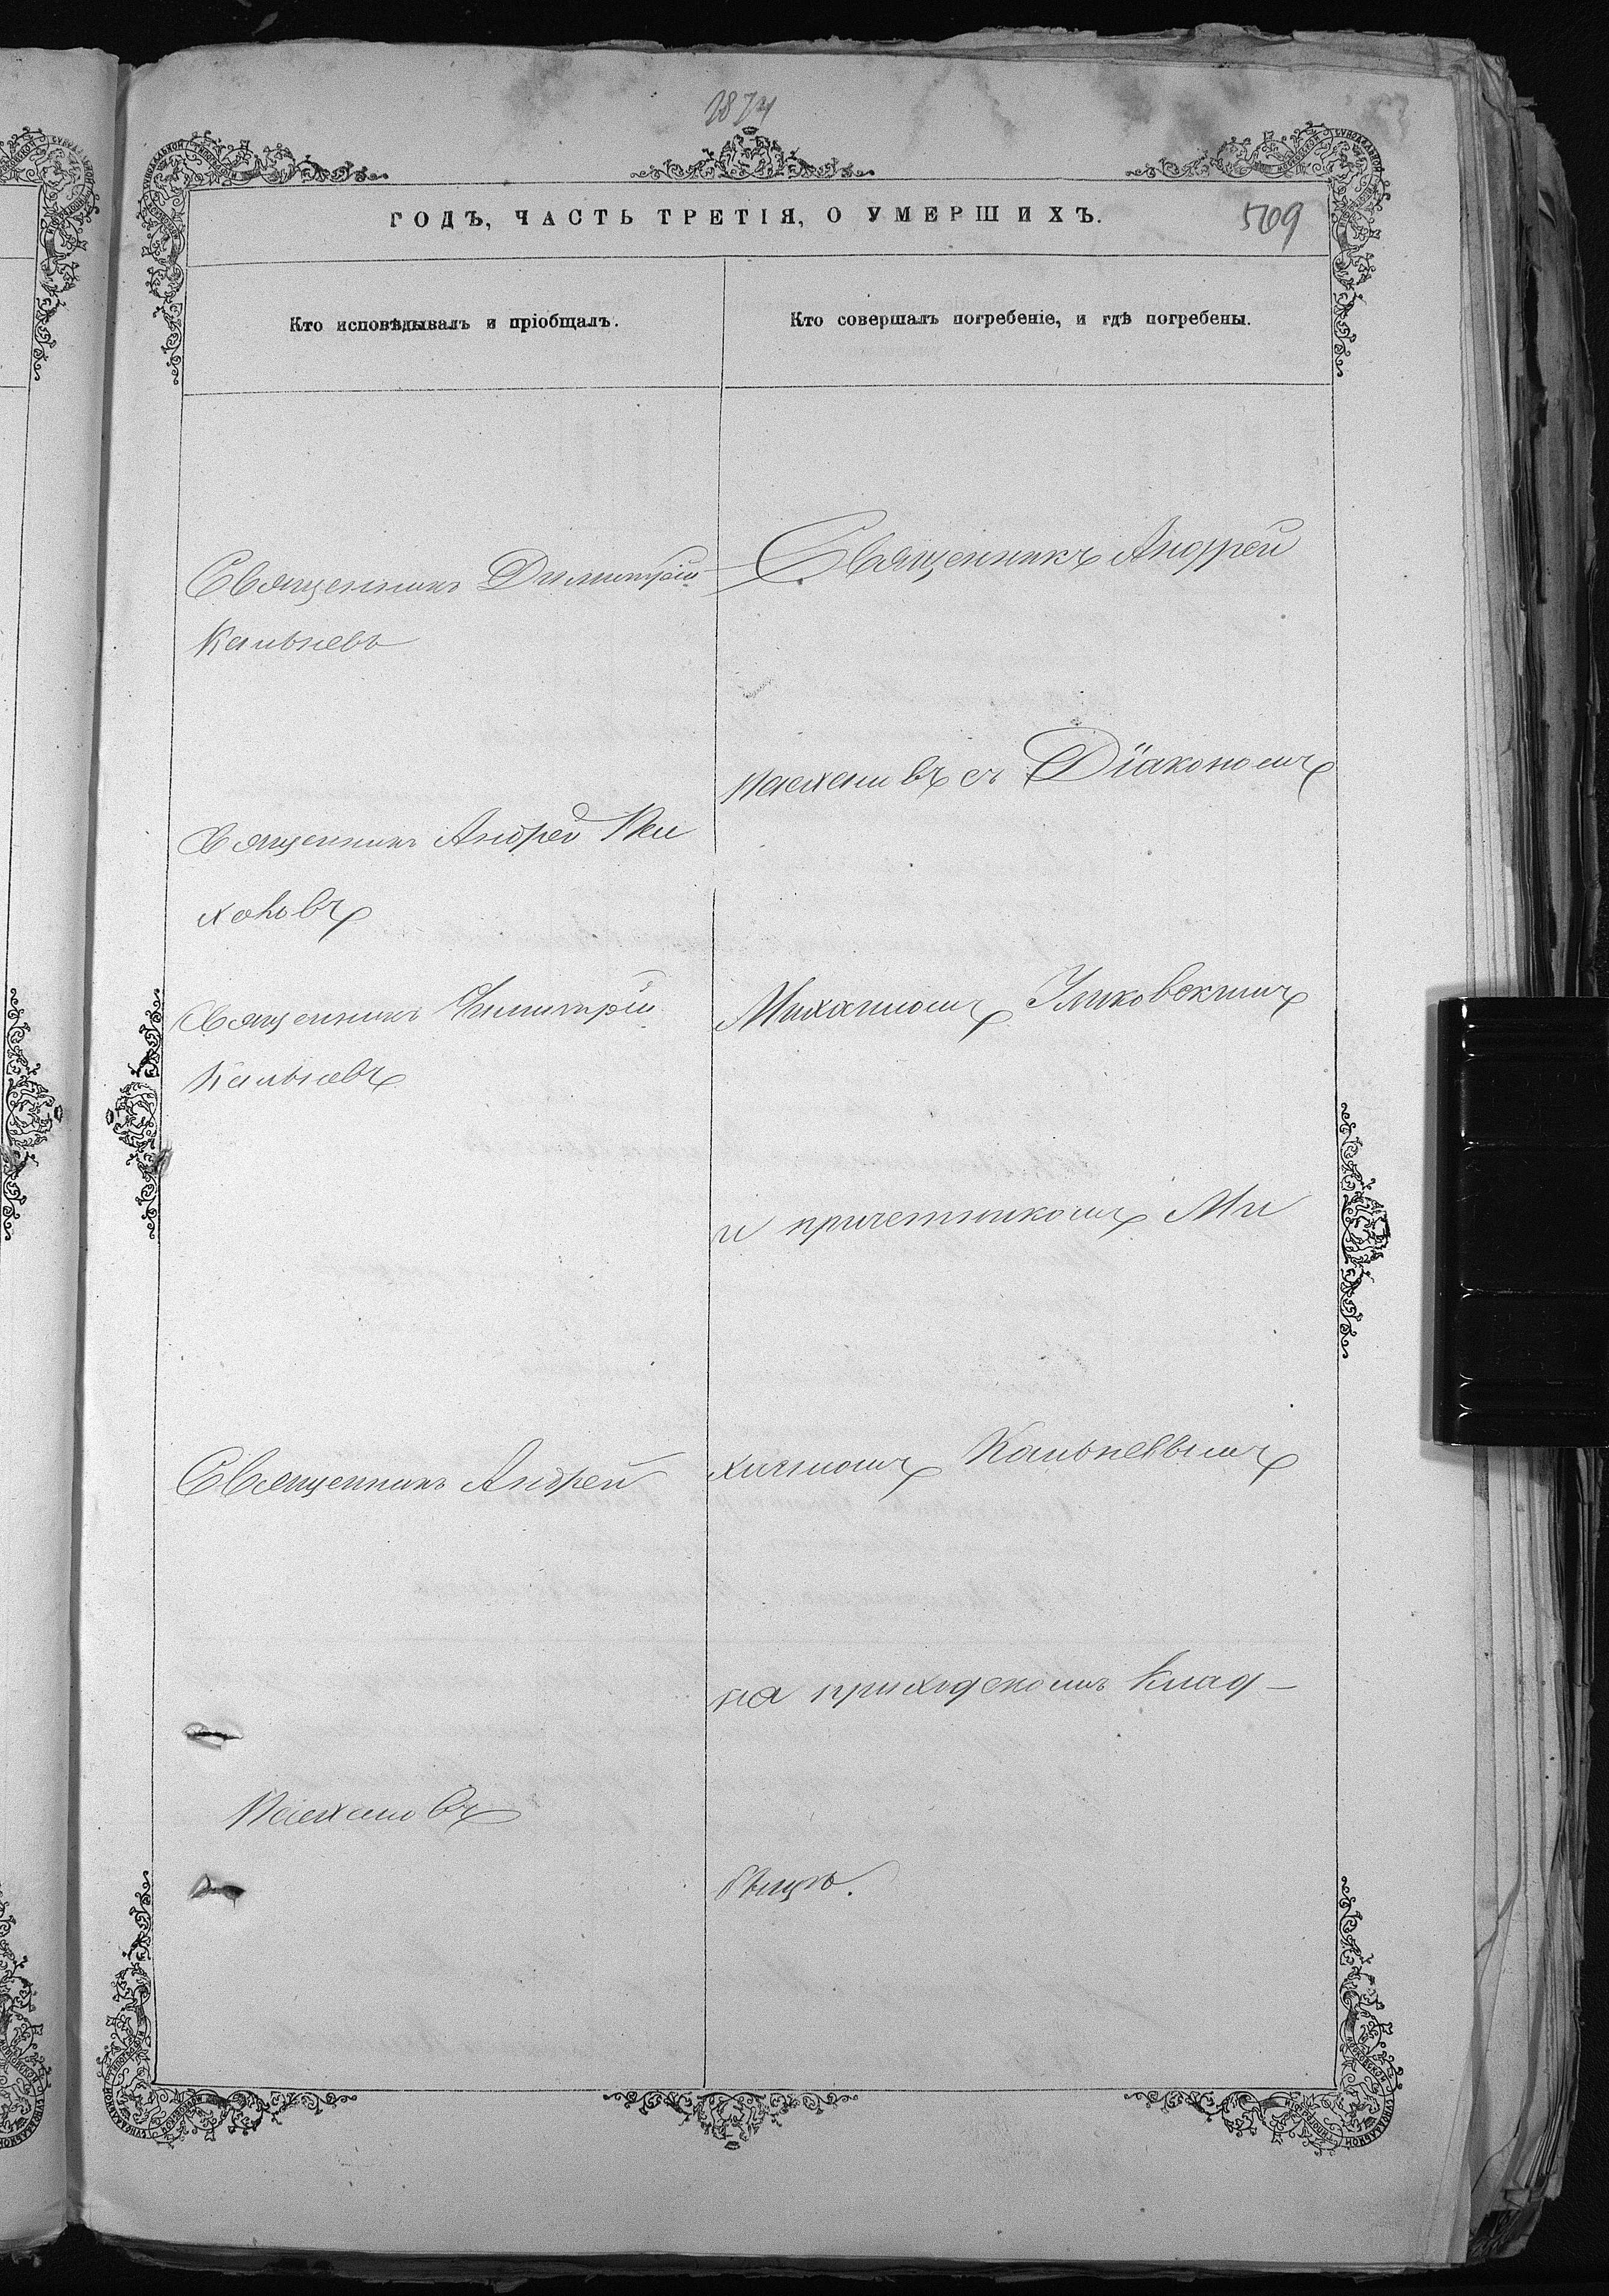 1874
ГОДЪ, ЧАСТЬ ТРЕТІЯ, О УМЕРШИХЪ.
509
Кто исповѣдывалъ и пріобщалъ.
Священникъ Димитрій
Кальневъ
Священникъ Андрей
Священникъ Димитрій
Кальневъ
Священникъ Андрей
Кто совершалъ погребеніе, и гдѣ погребены.
Священникъ Андрей
съ Діакономъ
Михаиломъ
и причетникомъ Ми
хаиломъ Кальневымъ
на приходскомъ клад-
бищѣ.